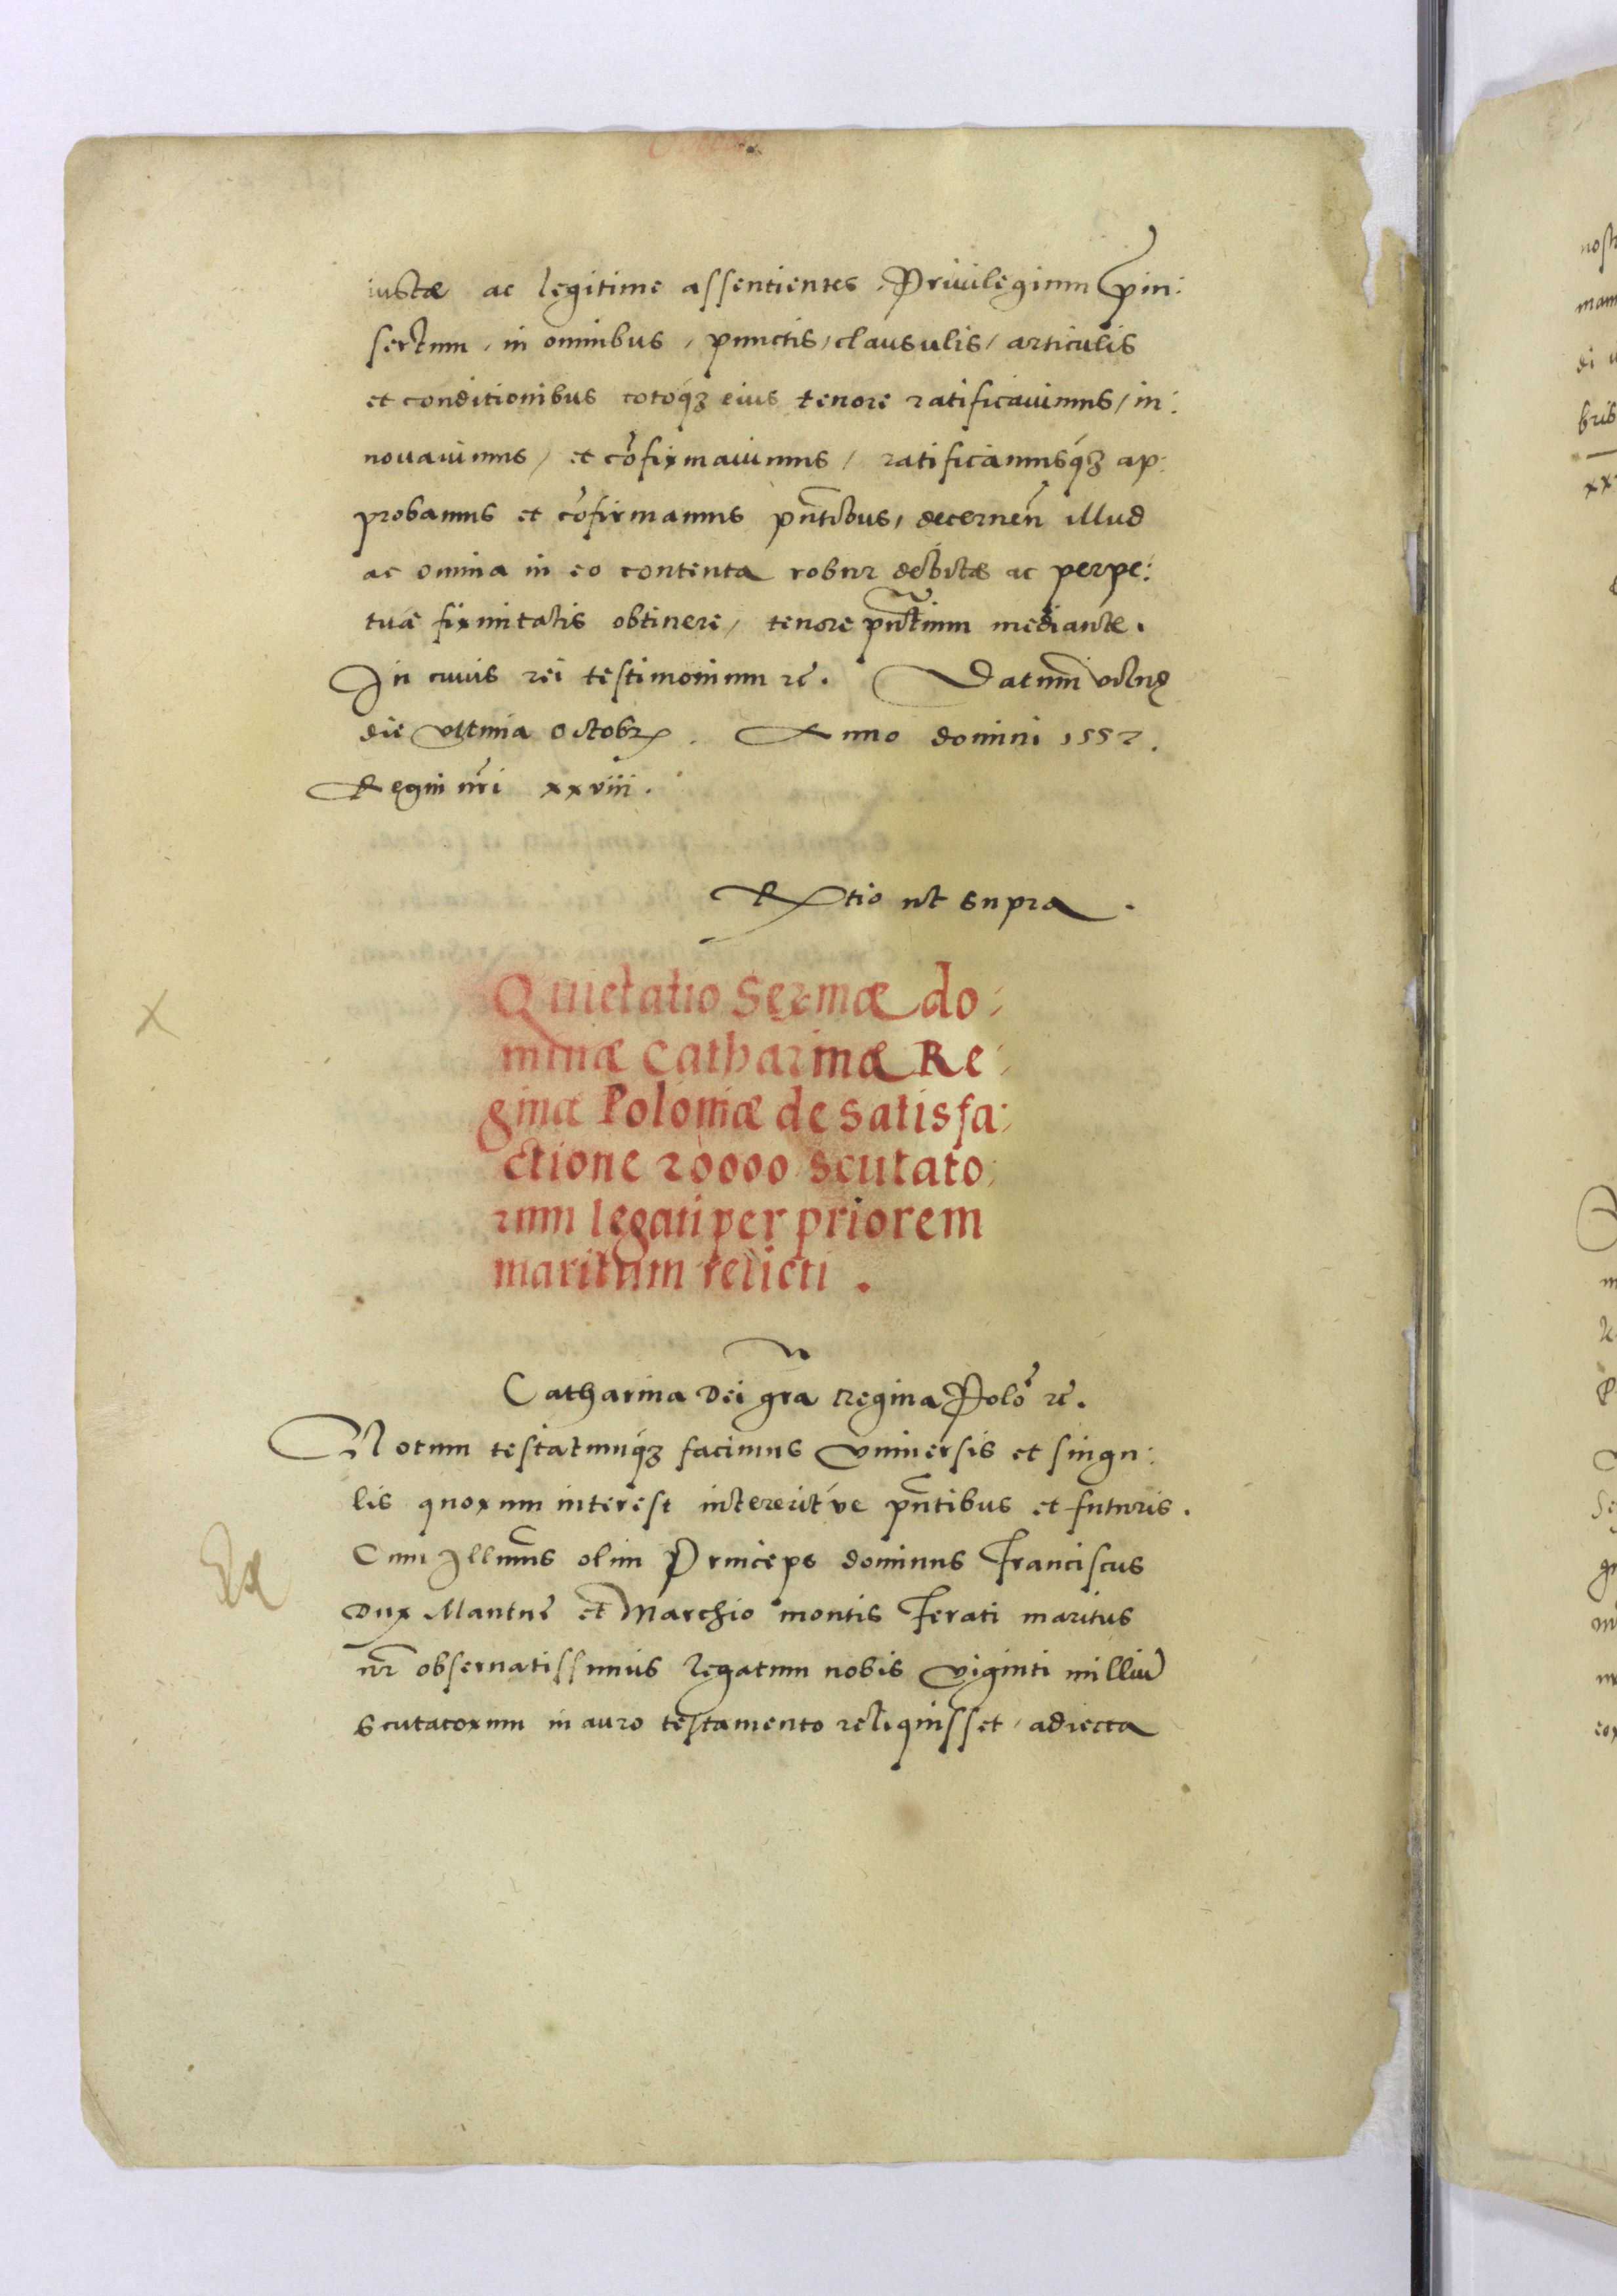 iustæ ac legitime assentientes, Privilegium pin:
sertum, in omnibus, punctis, clausulis, articulis
et conditionibus totoq́ꝫ eius tenore ratificavimus, in:
novavimus, et cõfirmavimus, ratificamusq́ꝫ ap:
probamus et cõfirmamus pñtibus, decerneñ illud
ac omnia in eo contenta robur debitæ ac perpe:
tuæ firmitatis obtinere, tenore pñtium mediante.
In cuius rei testimonium ꝛc̃. Datum viln̨
die ultima octobꝝ. Anno domini 1552.
Regni nr̃i xxviii.
Rꝑtio ut supra.
Quietatio Sermæ do:
minæ Catharinæ Re:
ginæ Poloniæ de satisfa:
ctione 20000 scutato:
rum legati per priorem
maritum relicti.
Catharina Dei gr̃a Regina Polõ ꝛc̃.
Notum testatumq́ꝫ facimus Universis et singu:
lis quorum interest intererit ve pñtibus et futuris.
Cum Illum̃s olim Princeps dominus Franciscus
Dux Mantuę et Marchio montis Ferati maritus
nr̃ observatissimus legatum nobis viginti milliũ
scutatorum in auro testamento reliquisset, adiecta